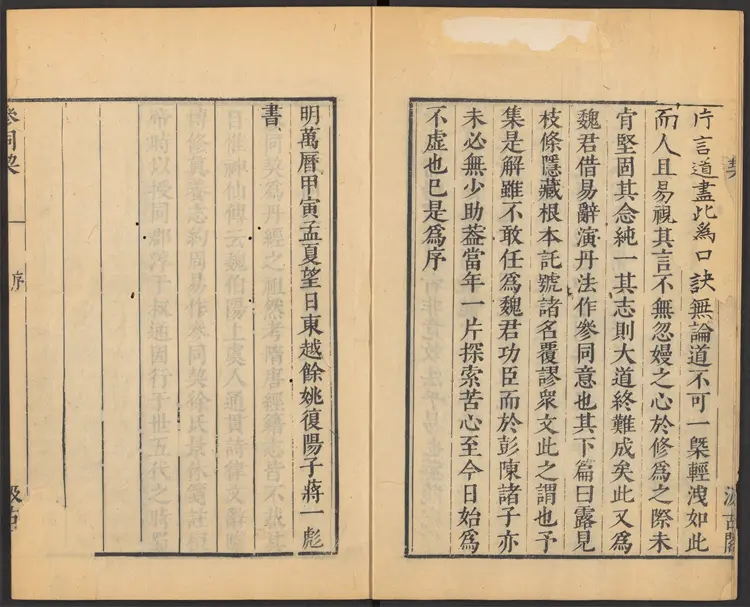 片言道盡此爲口訣無論道不可一槩輕洩如此
而人且易視其言不無忽嫚之心於修爲之際未
肯堅固其念純一其志則大道終難成矣此又爲
魏君借易辭演丹法作參同意也其下篇曰露見
枝條隱藏根本託號諸名覆謬衆文此之謂也予
集是解雖不敢任爲魏君功臣而於彭陳諸子亦
未必無少助葢當年一片探索苦心至今日始爲
不虛也已是爲序
明萬曆甲寅孟夏望日東越餘姚復陽子蔣一彪
書
參同契
序
汲古
汲古閣